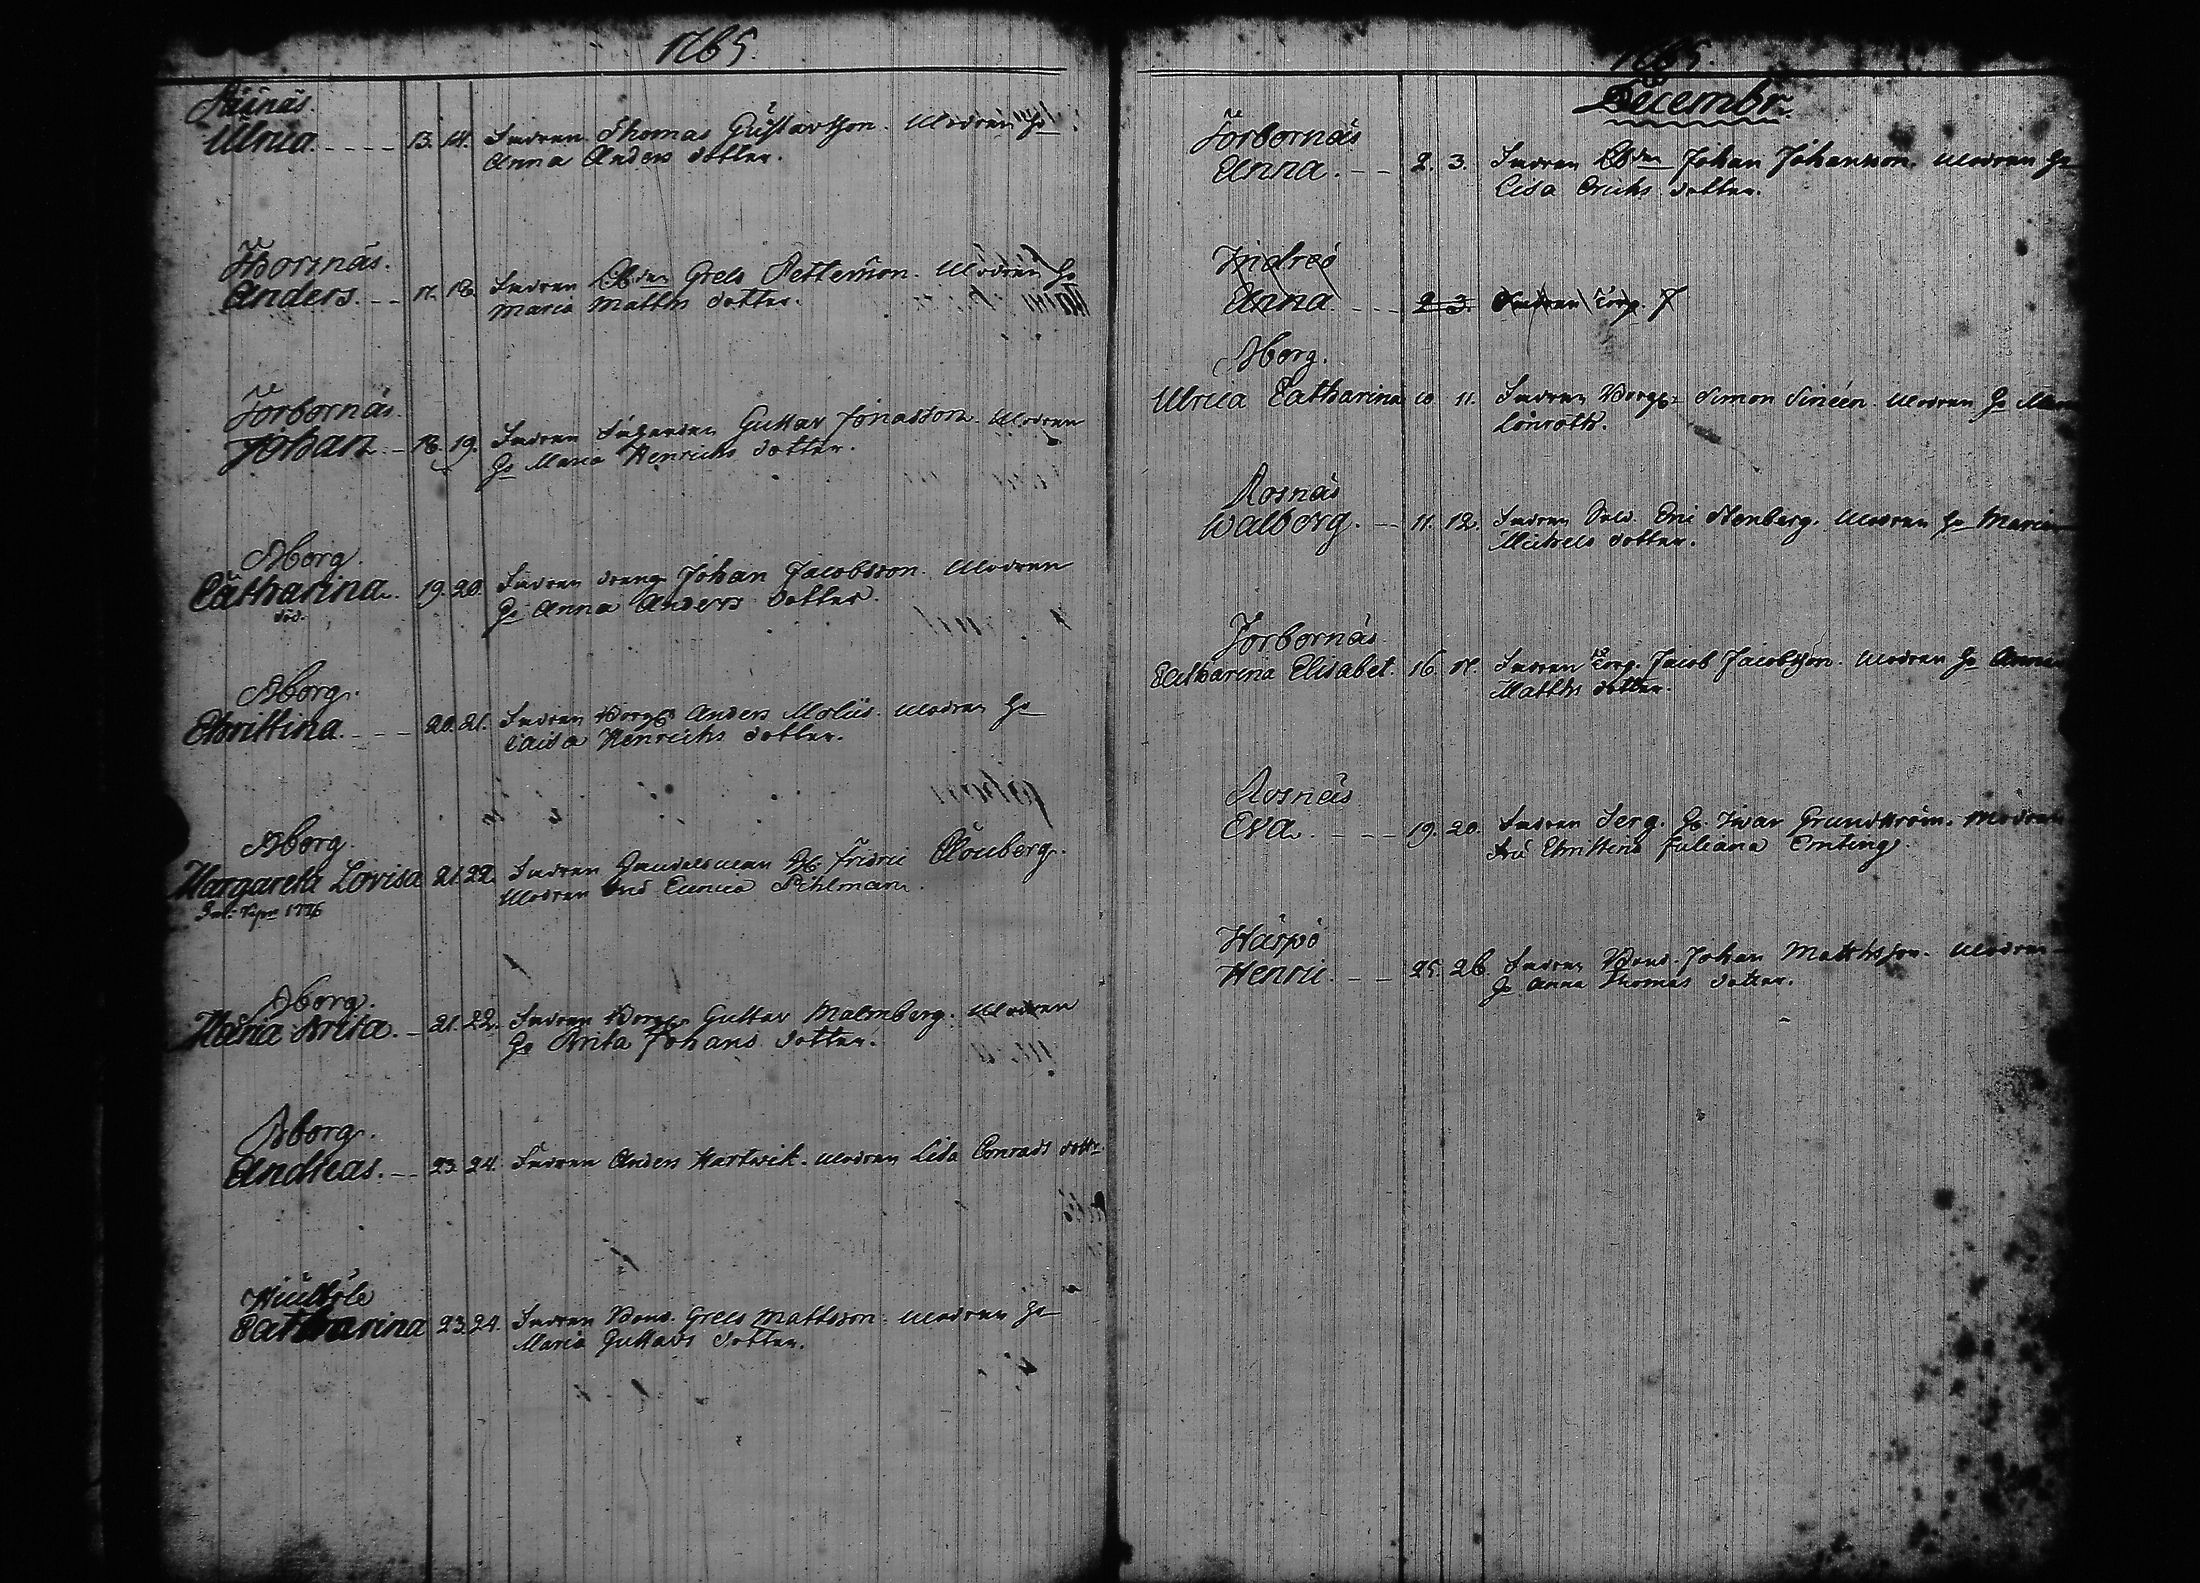 1765.
Ulrica. 13. 14. Fadren Thomas Gustavsson. Modren H:o
Anna Anders dotter.
Thorsnäs.
Anders. 17. 18. Fadren Grels Pettersson. Modren H:o
Maria Matths dotter.
Torbornäs
Johan. 18. 19. Fadren Gustav Jonasson. Modren
H:o Maria Henrichs dotter.
Bborg.
Catharina. 19. 20. Fadren dreng. Johan Jacobsson. Modren
död. H:o Anna Anders dotter.
Bborg.
Christina. 20. 21. Fadren Borg. Anders Moliis. Modren H:o
Caisa Henrichs dotter.
Bborg.
Margareta Lovisa 21. 22. Fadren Handelsman H:r Fridric Clouberg.
Modren Eunica Pihlman.
1776
Bborg.
Maria Brita. 21. 22. Fadren Borg. Gustav Malmberg. Modren
H:o Brita Johans dotter.
Bborg.
Andreas. 23. 24. Fadren Anders Hartwik. Modren Lisa Conrads dottr
Catharina 23. 24. Fadren Bond. Grels Mattsson. Modren H:o
Maria Gustavs dotter.
1765.
Decembr.
Torbornäs
Anna. 2. 3. Fadren Johan Johansson. Modren H:o
Lisa Erichs dotter.
Anna 2. 3. Fadren Torp. J
Bborg.
Ulrica Catharina 10 11. Fadren Borg. Simon Sineen. Modren H:o
Lönroth.
Rosnäs
Walborg. 11. 12. Fadren Sold. Eric Stenberg. Modren H:o Maria
Michels dotter.
Torbornäs
Catharina Elisabet. 16. 17. Fadren Torp. Jacob Jacobsson. Modren H:o Anna
Matths dotter.
Rosnäs
Eva. 19. 20. Fadren Serg. H:r Ivar Grundström. Modren
Fru Christina Juliana Emting.
Henric. 25. 26. Fadren Bond. Johan Matthsson. Modren
H:o Anna Thomas dotter.